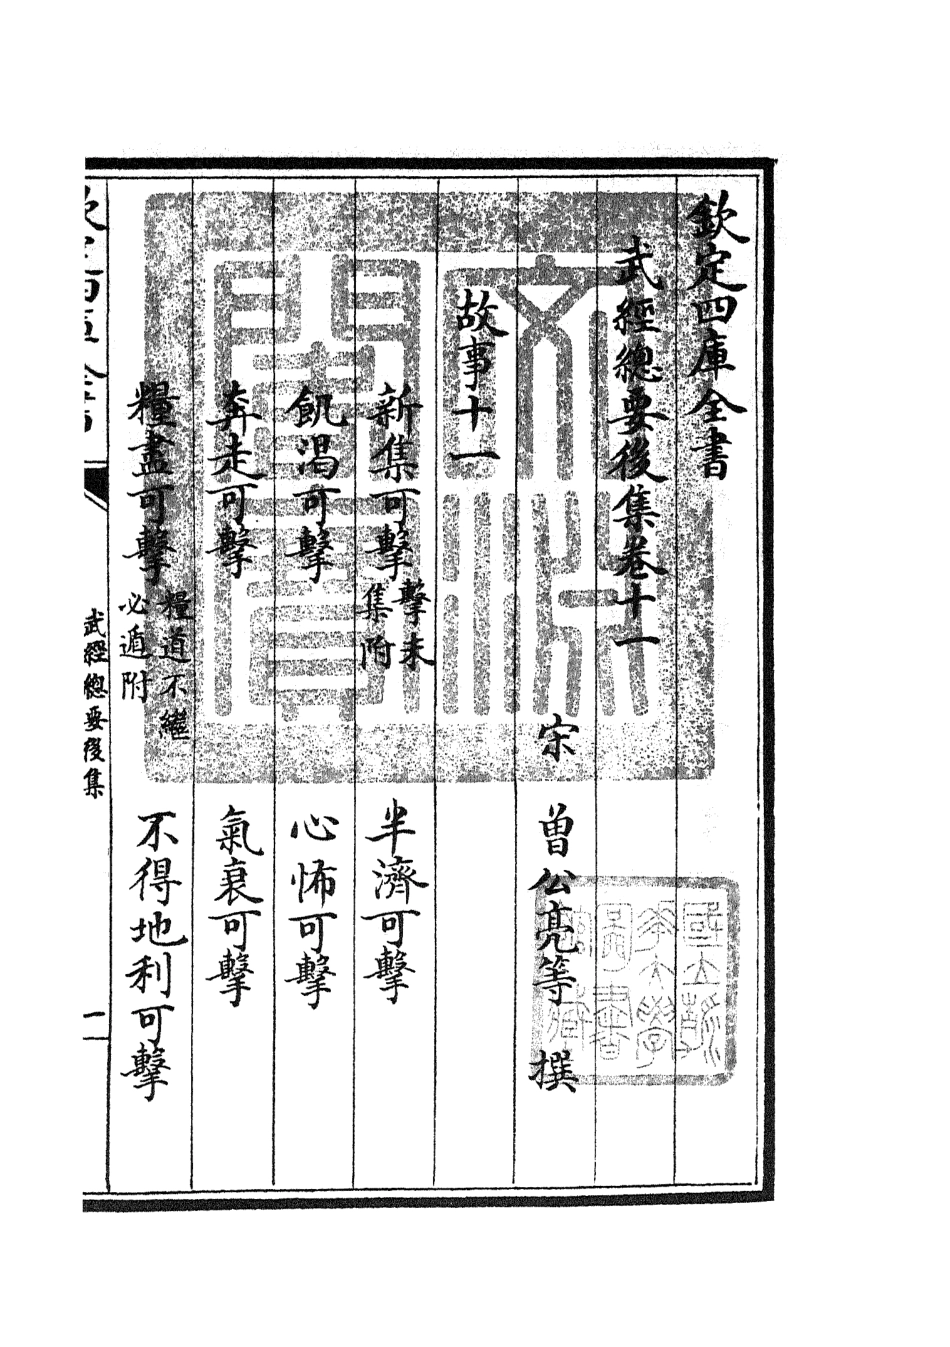 欽定四庫全書
武經總要後集卷十一
宋 曾公亮等 撰
故事十一
新集可擊 擊未集附 半濟可擊
飢渴可擊 心怖可擊
奔走可擊 氣衰可擊
糧盡可擊 糧道不繼必遁附 不得地利可擊
欽定四庫全書
武經總要後集
一
文淵閣寶
國立清華大學圖書館藏